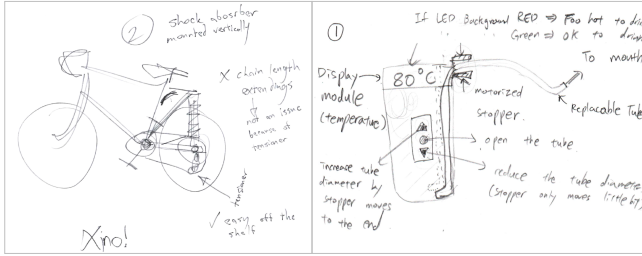 2
shock abosrber
mounted vertically
X chain length
extendings
not an issue
because of
tensioner
tensioner
✓ easy off the
shelf
X no!
1
If LED Background RED ⇒ Too hot to drin
Green ⇒ OK to drink
To mouth
Display
module
(temperature)
80°C
motorized
stopper.
Replacable Tube
open the tube
Increase tube
diameter by
stopper moves
to the end
reduce the tube diameter
(stopper only moves little bit)